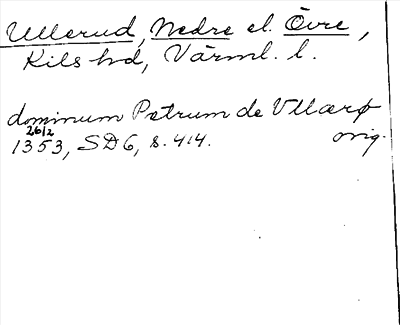 Ullerud, Nedre el. Övre,
Kils hd, Värml. l.
dominum Petrum de Vllærø
26/2
1353, SD6, s. 414. orig.